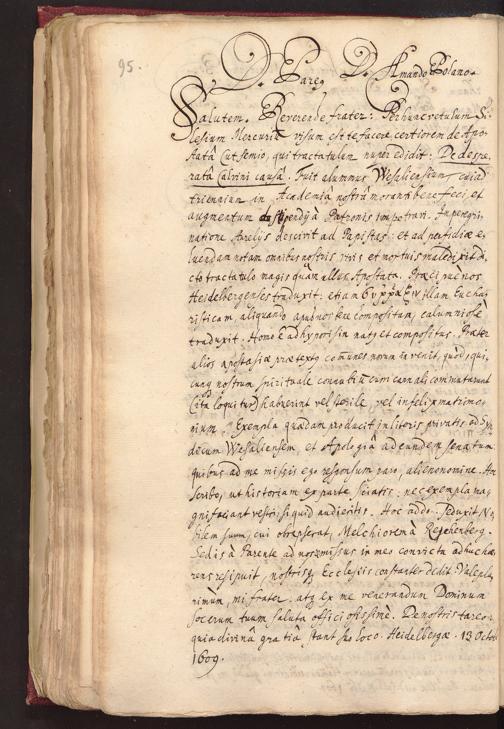 95.
D. Pareg D. Amando Polano.
Salutem. Reverende frater: Per hunc vetulum Si-
lesium Mercuriū visum est te facere certiorem de Apo-
statā Cutsemio, qui tractatulum nuper edidit: De despe-
ratā Calvini causā. Fuit alumnus Wesaliensium, cuiq
triennium in Academiā nostrā moranti benefeci, et
augmentum stipendij à Patronis impetravi. In peregri-
natione Aurelijs descivit ad Papistas: et ad perfidiae e-
luendam notam omnibus nostris vivis et mortuis maledixit di-
cto tractatulo magis quàm ullus Apostata. Praecipuè nos
Heidelbergenses traduxit: etiam illam Eucha-
risticam, aliquando apud nos compositam, calumniosè
traduxit. Homo ē ad hypocrisin nato et compositus. Praeter
alios apostasiae praetextus comunes novum invenit, quòd, qui-
cunq nostrum spirituale connubiū cum carnali commutarunt
(ita loquitur) habuerint vel sterile, vel infelix matrimo-
nium. Exempla quaedam producit in literis privatis ad
decum Wesaliensem, et Apologiā ad eundem senatum
quibus ad me missis ego responsum paro, alieno nomine. Haec
scribo, ut historiam ex parte sciatis: nec exempla ma-
gni faciant vestri, si quid audieritis. Hoc addo: seduxit No-
bilem suum, cui obrepserat, Melchiorem à Rechenberg.
Sed is à Parente ad nos missus in meo convictu adhuc hae-
rens resipuit, nostrisq Ecclesiis constanter dedit. Vale plu-
rimùm, mi frater. atq ex me venerandum Dominum
socerum tuum saluta officiosissimè. De nostris taceo
quia divinā gratiā stant suo loco. Heidelbergae. 13 Octob
1609.